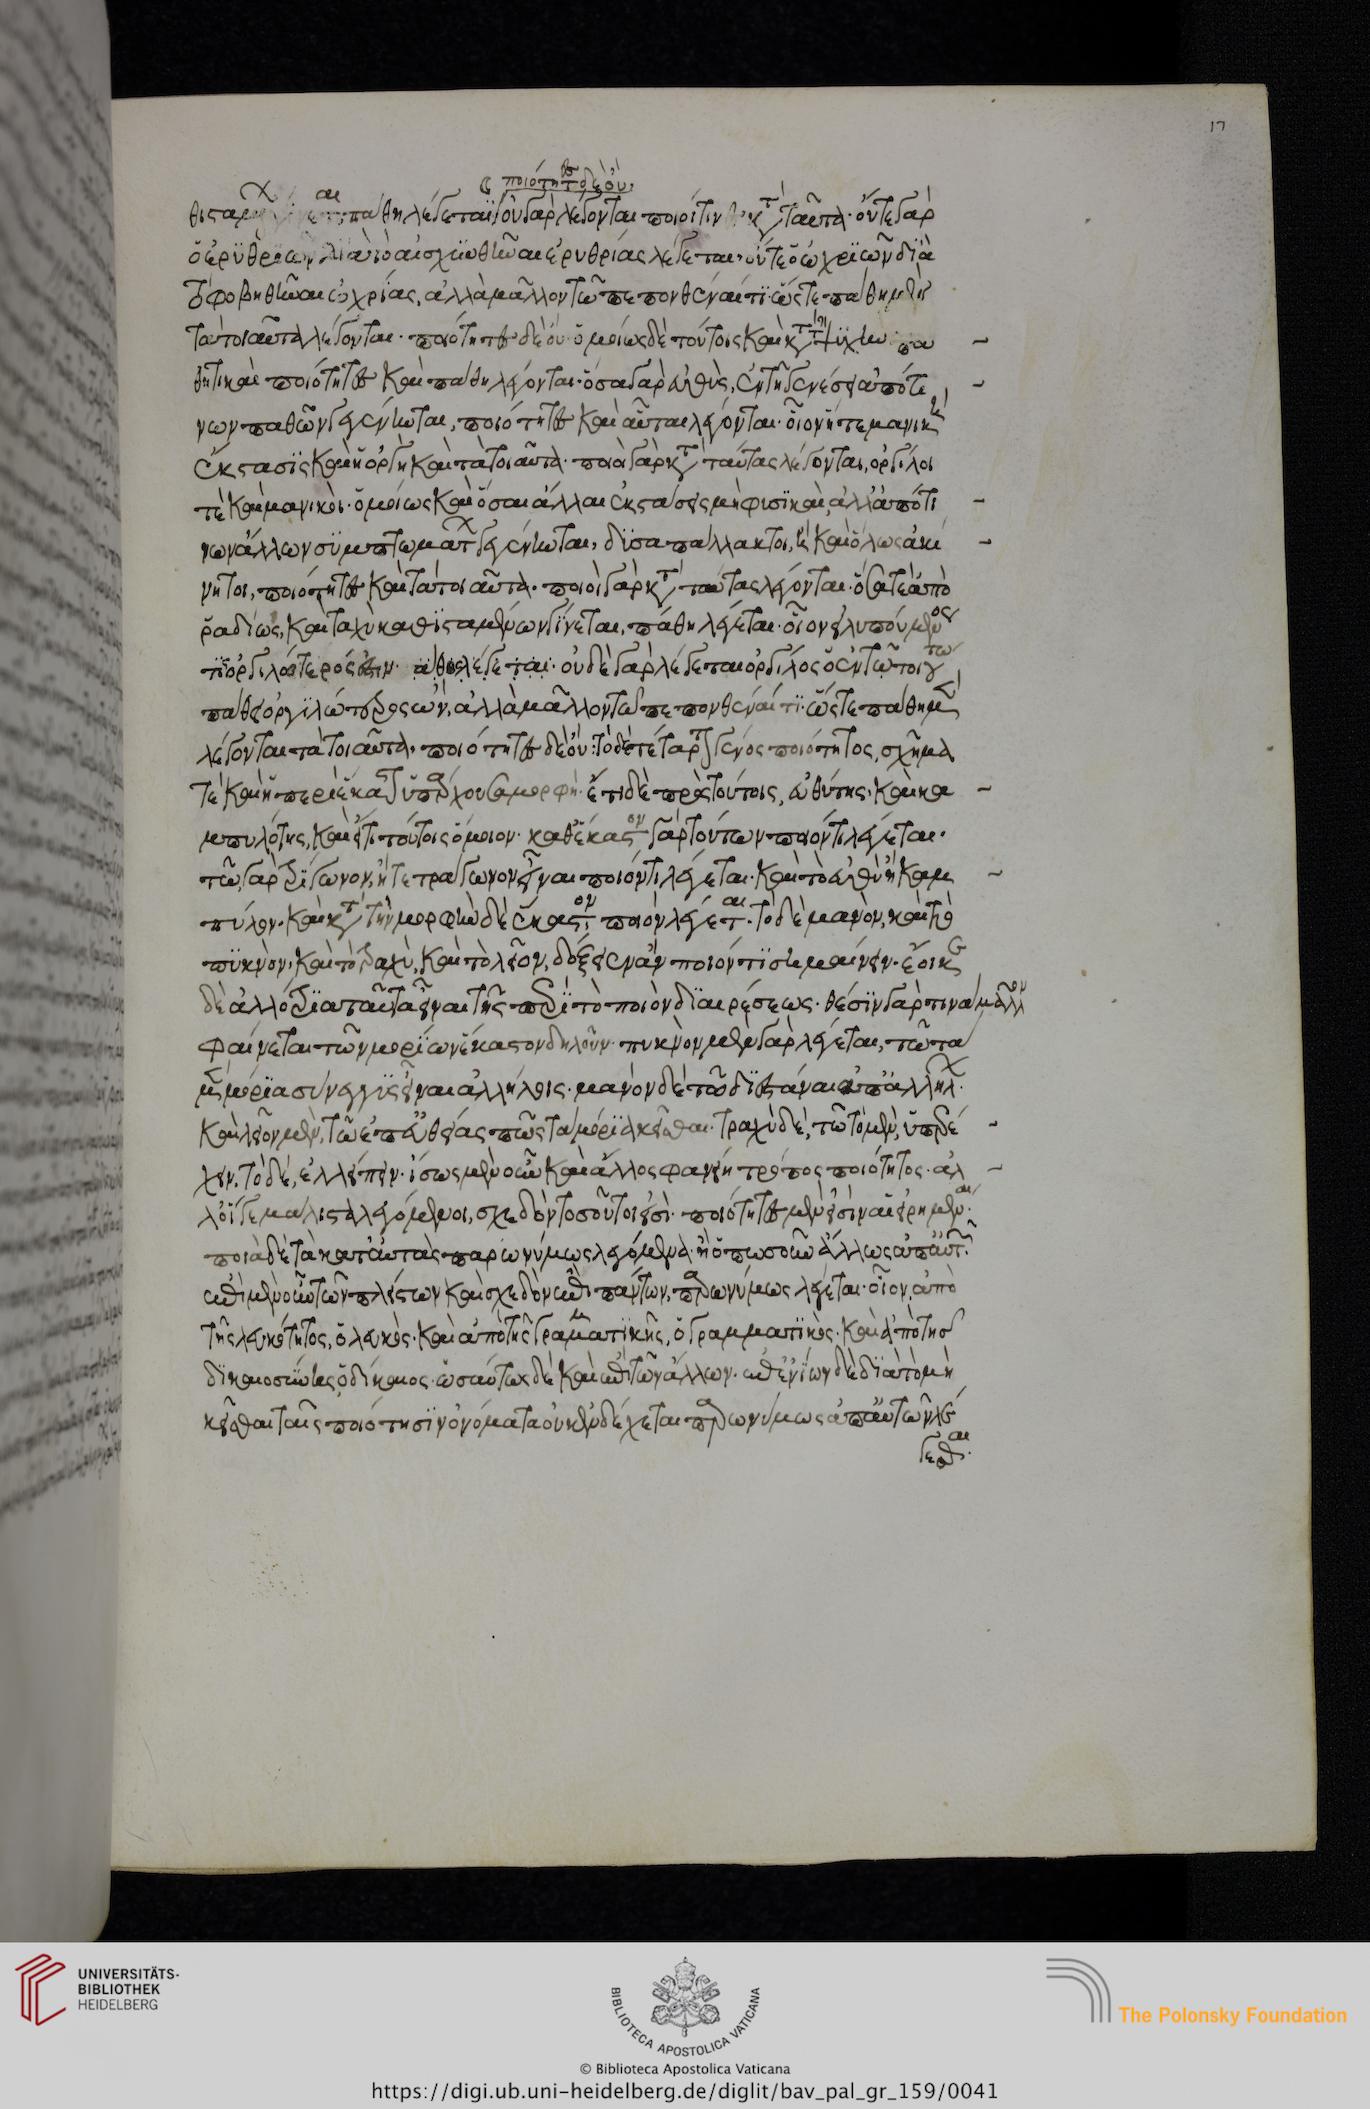 17
ποιότητες δὲ οὔ
πάθη λέγεται οὐ γὰρ λέγονται ποιοί τινες κατὰ ταῦτα· οὔτε γὰρ
ὁ ἐρυθριῶν διὰ τὸ αἰσχυνθῆναι ἐρυθρίας λέγεται· οὔτε ὁ ὠχριῶν διὰ
τὸ φοβηθῆναι ὠχρίας, ἀλλὰ μᾶλλον τῶ πεπονθέναι τί· ὥστε πάθη μὲν
τὰ τοιαῦτα λέγονται· ποιότητες δὲ οὔ· ὁμοίως δὲ τούτοις καὶ κατὰ τὴν ψυχὴν πα
θητικαὶ ποιότητες καὶ πάθη λέγονται· ὅσα γὰρ εὐθὺς, ἐν τῆ γενέσει ἀπό τι
νων παθῶν γεγένηται, ποιότητες καὶ αὗται λέγονται· οἷον ἥ τε μανικὴ
ἔκστασις καὶ ἡ ὀργὴ καὶ τὰ τοιαῦτα· ποιοὶ γὰρ κατὰ ταύτας λέγονται, ὀργίλοι
τὲ καὶ μανικοί· ὁμοίως καὶ ὅσαι ἄλλαι ἐκστάσεις μὴ φυσικαὶ, ἀλλ' ἀπό τι
νων ἄλλων συμπτωμάτων γεγένηται, δυσαπάλλακτοι, ἢ καὶ ὅλως ἀκί
νητοι, ποιότητες καὶ τὰ τοιαῦτα· ποιοὶ γὰρ κατὰ ταύτας λέγονται· ὅσα τε ἀπὸ
ῥαδίως, καὶ ταχὺ καθισταμένων γίνεται, πάθη λέγεται· οἷον εἰ λυπούμενος
τῒς ὀργιλώτερός ἐστιν· πάθος λέγεται· οὐδὲ γὰρ λέγεται ὀργίλος ὁ ἐν τῶ τοιούτω
πάθει ὀργιλώτερος ὤν, ἀλλὰ μᾶλλον τῶ πεπονθέναι τί· ὥστε πάθη μὲν
λέγονται τὰ τοιαῦτα· ποιότητες δὲ οὔ: τὸ δὲ τέταρτον γένος ποιότητος, σχῆμα
τὲ καὶ ἡ περὶ ἕκαστον ὑπάρχουσα μορφή· ἔτι δὲ πρὸς τούτοις, εὐθύτης· καὶ κα
μπυλότης, καὶ εἴ τι τούτοις ὅμοιον· καθ' ἕκαστον γὰρ τούτων ποιόν τι λέγεται·
τῶ γὰρ τρίγωνον, ἢ τετράγωνον εἶναι ποιόν τι λέγεται· καὶ τὸ εὐθὺ ἢ καμ
πύλον· καὶ κατὰ τὴν μορφὴν δὲ ἕκαστον ποιὸν λέγεται· τὸ δὲ μανὸν, καὶ τὸ
πυκνὸν· καὶ τὸ τραχὺ, καὶ τὸ λεῖον, δόξειεν ἂν ποιόν τι σημαίνειν· ἔοικε
δὲ ἀλλότρια ταῦτα εἶναι τῆς περὶ τὸ ποιὸν διαιρέσεως· θέσιν γάρ τινα μᾶλλον
φαίνεται τῶν μορίων ἑκάτερον δηλοῦν· πυκνὸν μὲν γὰρ λέγεται, τῶ τὰ
μὲν μόρια σύνεγγυς εἶναι ἀλλήλοις· μανὸν δὲ τῶ διεστάναι ἀπ' ἀλλήλων·
καὶ λεῖον μὲν, τῶ ἐπ' εὐθείας πῶς τὰ μόρια κεῖσθαι· τραχὺ δὲ, τῶ τὸ μὲν, ὑπερέ
χειν, τὸ δὲ, ἐλλείπειν· ἴσως μὲν οὖν καὶ ἄλλος φανείη τρόπος ποιότητος· ἀλ
λ' οἵ γε μάλιστα λεγόμενοι, σχεδὸν τοσοῦτοι εἰσί· ποιότητες μὲν εἰσὶν αἱ εἰρημέναι·
ποιὰ δὲ τὰ κατ' αὐτὰς παρωνύμως λεγόμενα· ἢ ὁπωσοῦν ἄλλως ἀπ' αὐτῶν·
ἐπὶ μὲν οὖν τῶν πλείστων καὶ σχεδὸν ἐπὶ πάντων, παρωνύμως λέγεται· οἷον, ἀπὸ
τῆς λευκότητος, ὁ λευκὸς· καὶ ἀπὸ τῆς γραμματικῆς, ὁ γραμματικὸς· καὶ ἀπὸ τῆς
δικαιοσύνης ὁ δίκαιος· ὡσαύτως δὲ καὶ ἐπὶ τῶν ἄλλων· ἐπ' ἐνίων δὲ διὰ τὸ μὴ
κεῖσθαι ταῖς ποιότησιν ὀνόματα οὐκ ἐνδέχεται παρωνύμως ἀπ' αὐτῶν λέ
γεσθαι·
UNIVERSITÄTS-
BIBLIOTHEK
HEIDELBERG
BIBLIOTECA APOSTOLICA VATICANA
The Polonsky Foundation
© Biblioteca Apostolica Vaticana
https://digi.ub.uni-heidelberg.de/diglit/bav_pal_gr_159/0041